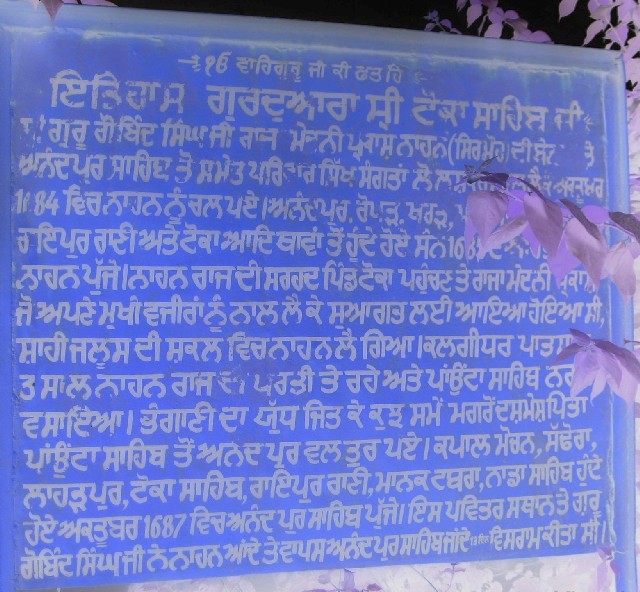 ੧੬ ਵਾਹਿਗੁਰੂ ਜੀ ਕੀ ਫਤਹਿ
ਇਤਿਹਾਸ ਗੁਰਦੁਆਰਾ ਸ੍ਰੀ ਟੋਕਾ ਸਾਹਿਬ ਜੀ
ਗੁਰੂ ਗੋਬਿੰਦ ਸਿੰਘ ਜੀ ਰਾਜਾ ਮੇਦਨੀ ਪ੍ਰਕਾਸ਼ ਨਾਹਨ (ਸਿਰਮੌਰ) ਦੀ ਤੇ
ਅਨੰਦਪੁਰ ਸਾਹਿਬ ਤੋਂ ਸਮੇਤ ਪਰਿਵਾਰ ਸਿੱਖ ਸੰਗਤਾਂ ਲੈ ਕੇ ਅਕਤੂਬਰ
1684 ਵਿਚ ਨਾਹਨ ਨੂੰ ਚਲ ਪਏ। ਅਨੰਦਪੁਰ, ਰੋਪੜ, ਖਰੜ,
ਰਾਇਪੁਰ ਰਾਣੀ ਅਤੇ ਟੋਕਾ ਆਦਿ ਥਾਵਾਂ ਤੋਂ ਹੁੰਦੇ ਹੋਏ ਸੰਨ
ਨਾਹਨ ਪੁੱਜੇ। ਨਾਹਨ ਰਾਜ ਦੀ ਸਰਹਦ ਪਿੰਡ ਟੋਕਾ ਪਹੁੰਚਣ ਤੇ ਰਾਜਾ ਮੇਦਨੀ ਪ੍ਰਕਾਸ਼
ਜੋ ਅਪਣੇ ਮੁਖੀ ਵਜੀਰਾਂ ਨੂੰ ਨਾਲ ਲੈ ਕੇ ਸੁਆਗਤ ਲਈ ਆਇਆ ਹੋਇਆ ਸੀ,
ਸ਼ਾਹੀ ਜਲੂਸ ਦੀ ਸ਼ਕਲ ਵਿਚ ਨਾਹਨ ਲੈ ਗਿਆ। ਕਲਗੀਧਰ ਪਾਤਸ਼ਾਹ
3 ਸਾਲ ਨਾਹਨ ਰਾਜ ਦੀ ਧਰਤੀ ਤੇ ਰਹੇ ਅਤੇ ਪਾਂਉਂਟਾ ਸਾਹਿਬ ਨਗਰ
ਵਸਾਇਆ। ਭੰਗਾਣੀ ਦਾ ਯੁੱਧ ਜਿਤ ਕੇ ਕੁਝ ਸਮੇਂ ਮਗਰੋਂ ਦਸ਼ਮੇਸ਼ ਪਿਤਾ
ਪਾਂਉਂਟਾ ਸਾਹਿਬ ਤੋਂ ਅਨੰਦ ਪੁਰ ਵਲ ਤੁਰ ਪਏ। ਕਪਾਲ ਮੋਚਨ, ਸੱਢੋਰਾ,
ਲਾਹੜਪੁਰ, ਟੋਕਾ ਸਾਹਿਬ, ਰਾਇਪੁਰ ਰਾਣੀ, ਮਾਨਕ ਟਬਰਾ, ਨਾਡਾ ਸਾਹਿਬ ਹੁੰਦੇ
ਹੋਏ ਅਕਤੂਬਰ 1687 ਵਿਚ ਅਨੰਦ ਪੁਰ ਸਾਹਿਬ ਪੁੱਜੇ। ਇਸ ਪਵਿਤਰ ਸਥਾਨ ਤੇ ਗੁਰੂ
ਗੋਬਿੰਦ ਸਿੰਘ ਜੀ ਨੇ ਨਾਹਨ ਆਂਦੇ ਤੇ ਵਾਪਸ ਅਨੰਦਪੁਰ ਸਾਹਿਬ ਜਾਂਦੇ 13 ਦਿਨ ਵਿਸਰਾਮ ਕੀਤਾ ਸੀ।